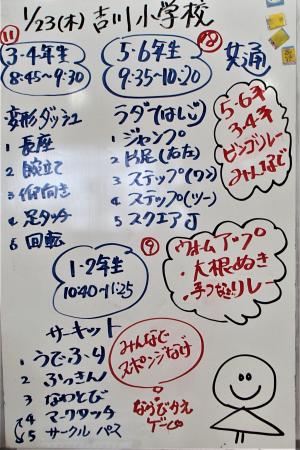 1/23(木) 吉川小学校
⑪
3・4年生
8:45~9:30
変形ダッシュ
1 長座
2 腕立て
3 仰向き
4 足タッチ
5 回転
5・6年生
9:35~10:20
ラダー(はしご)
1 ジャンプ
2 片足(右左)
3 ステップ(ワン)
4 ステップ(ツー)
5 スクエアJ
共通
5・6年
3・4年
ビンゴリレー
みんなで
1・2年生
10:40~11:25
⑨
サーキット
1 うでふり
2 ふっきん
3 なわとび
4 マークタッチ
5 サークルパス
ウォームアップ
・大根ぬき
・手つなぎリレー
みんなで
スポンジなげ
ならびかえ
ゲーム